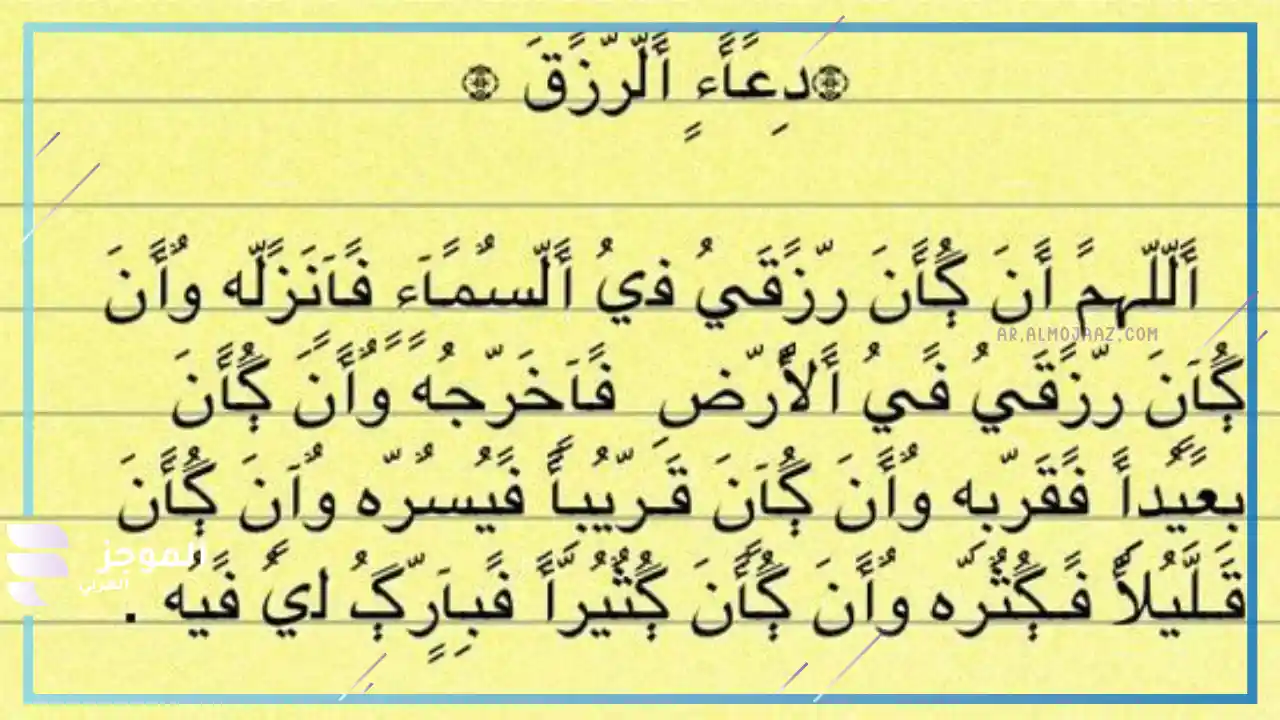 ۞دِعًأَءٍ أَلّرّزًقَ ۞
أَلّلّہمً أَنَ كُأَنَ رّزًقَيُ فيُ أَلّسمًأَء فًأَنَزًلّه وٌأَنَ
كُأَنَ رّزًقَيُ فًيُ أَلأرّض فًأَخَرّجُه وٌأَنَ كُأَنَ
بعًيُدِأَ فًقَرّبه وٌأَنَ كُأَنَ قَرّيُبأَ فًيُسرّه وٌأَنَ كُأَنَ
قَلّيُلأَ فًكُثُرّه وٌأَنَ كُأَنَ كُثُيُرّأَ فًبأَرّكُ ليُ فًيُه .
AR.ALMOJAAZ.COM
الموجز
العربي